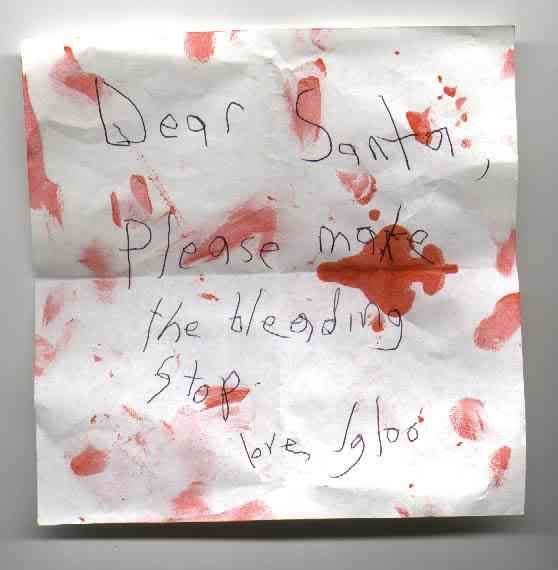 Dear Santa,
Please make
the bleeding
stop.
love, Igloo